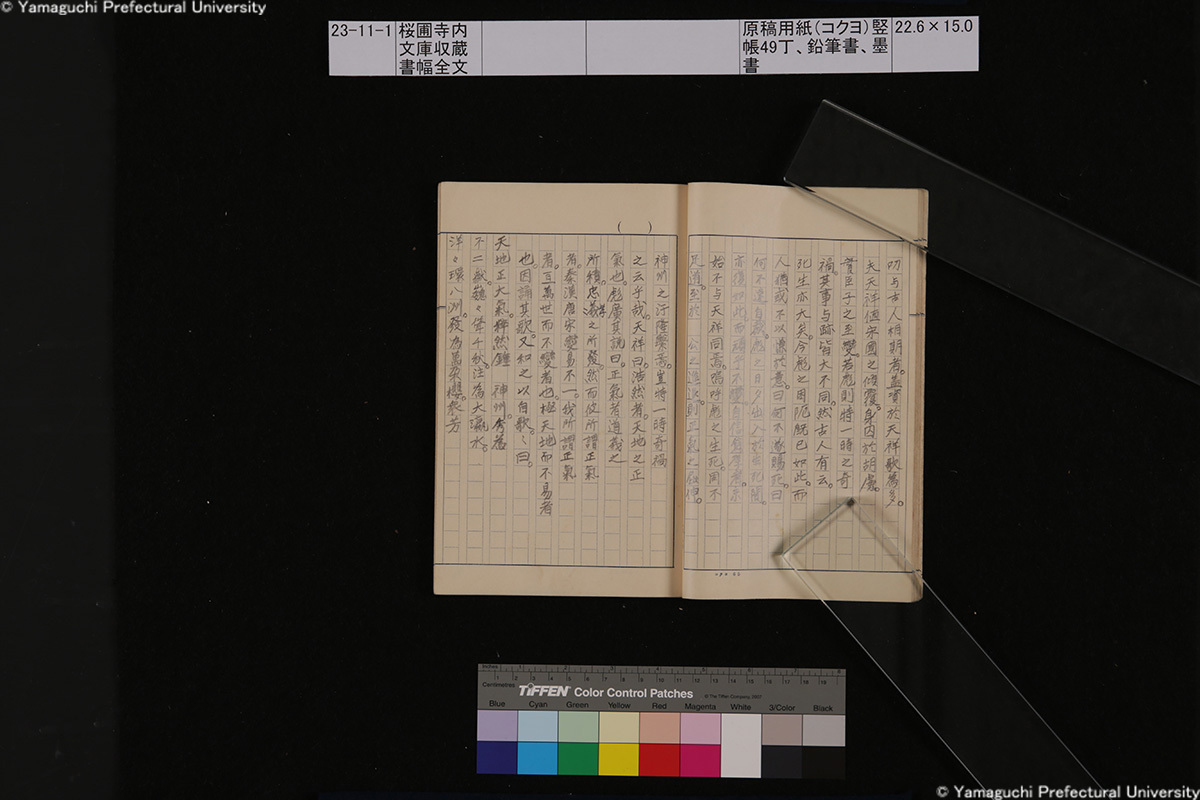 © Yamaguchi Prefectural University
23-11-1
桜圃寺内
文庫収蔵
書幅全文
原稿用紙(コクヨ)竪
帳49丁、鉛筆書、墨
書
22.6×15.0
叨与古人相期者。盖實於天祥歌為多。
夫天祥値宋國之傾覆。身内於胡虜。
實臣子之至變。若彪則特一時之奇
禍。其事与跡皆大不同。然古人有云。
死生亦大矣。今彪之困阨既已如此。而
人猶或不以為意。曰何不遂賜死。曰
何不速自
始不与天祥同焉。嗚呼彪之生死。固不
足道。至於 公之進退則正氣之
神州之汙隆繫焉。豈特一時奇禍
之云乎哉。天祥曰。浩然者。天地之正
氣也。彪廣其説曰。正氣者道義之
所積。忠孝之所發。然而彼所謂正氣
者。秦漢唐宋變易不一。我所謂正氣
者。亘萬世而不變者也。極天地而不易者
也。因誦其歌。又和之以自歌。〻曰。
天地正大氣。粋然鍾 神州。秀為
不二嶽。巍々聳千秋。注為大瀛水。
洋々環八洲。發為萬朶櫻。衆芳
( )
Inches
Centimetres
TIFFEN Color Control Patches
© The Tiffen Company, 2007
Blue Cyan Green Yellow Red Magenta White 3/Color Black
© Yamaguchi Prefectural University